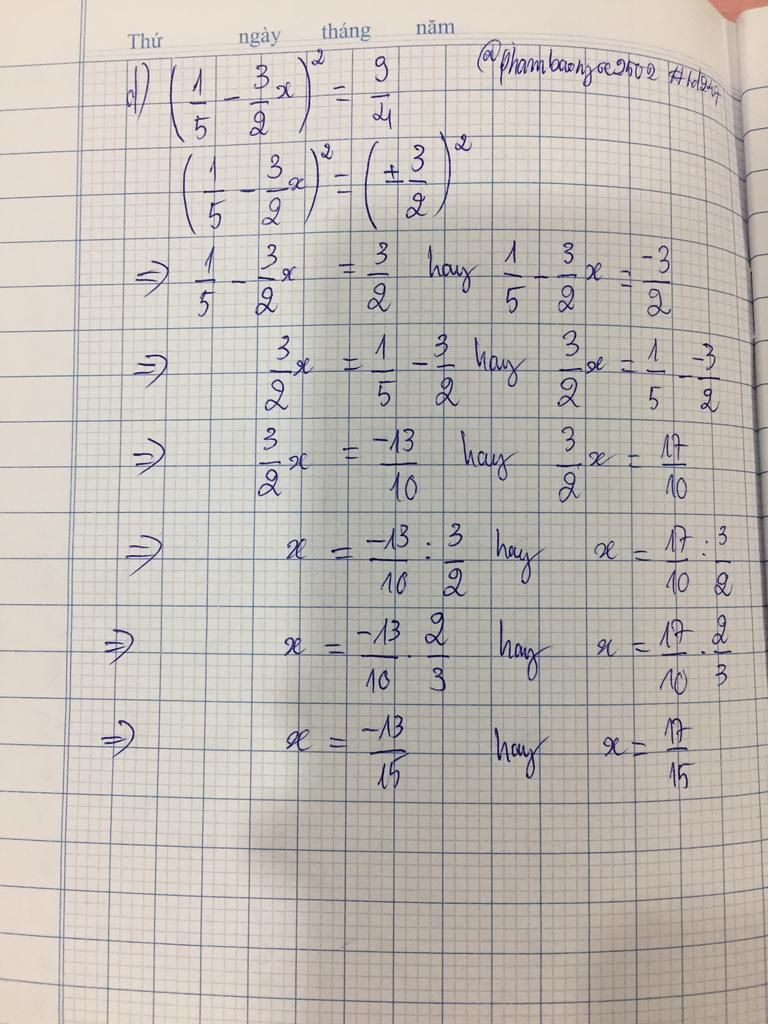 Thứ ngày tháng năm
@phambaongoc2502
d) (1/5 - 3/2 x)² = 9/4
(1/5 - 3/2 x)² = (± 3/2)²
⇒ 1/5 - 3/2 x = 3/2 hay 1/5 - 3/2 x = -3/2
⇒ 3/2 x = 1/5 - 3/2 hay 3/2 x = 1/5 - -3/2
⇒ 3/2 x = -13/10 hay 3/2 x = 17/10
⇒ x = -13/10 : 3/2 hay x = 17/10 : 3/2
⇒ x = -13/10 . 2/3 hay x = 17/10 . 2/3
⇒ x = -13/15 hay x = 17/15